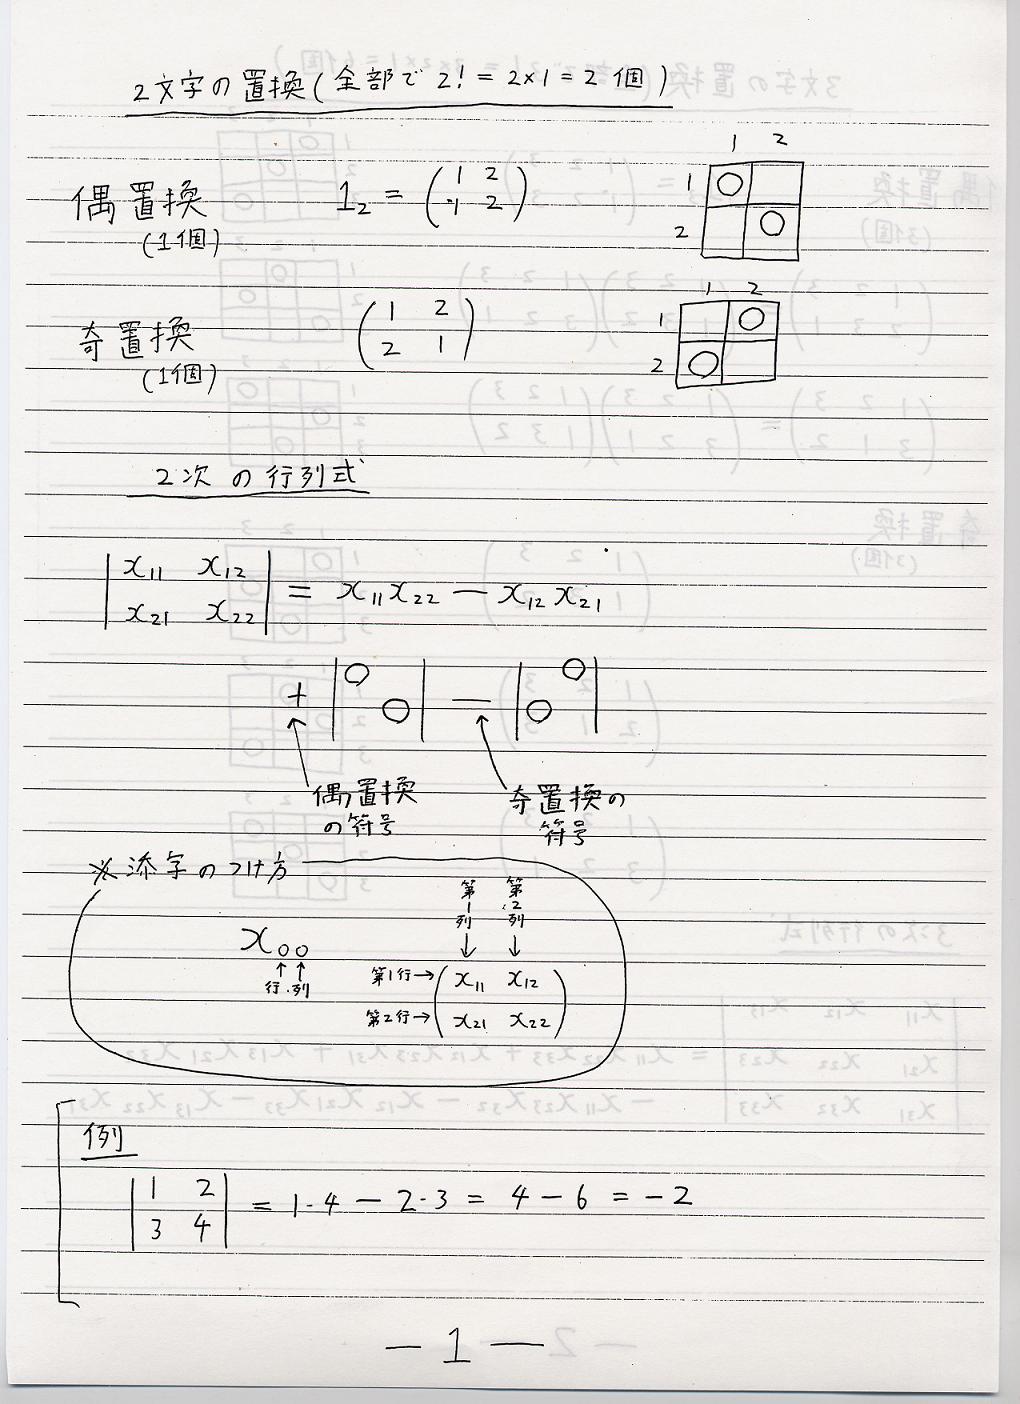 2文字の置換(全部で 2! = 2×1 = 2 個)
1 2
偶置換 1₂ = (1 2 / 1 2) 1
(1個) 2
1 2
奇置換 (1 2 / 2 1) 1
(1個) 2
2次の行列式
|x₁₁ x₁₂|
|x₂₁ x₂₂| = x₁₁x₂₂ − x₁₂x₂₁
+ |○ ○| − |○ ○|
偶置換の符号
奇置換の符号
※添字のつけ方
x○○
↑ ↑
行・列
第1列 第2列
↓ ↓
第1行→(x₁₁ x₁₂)
第2行→(x₂₁ x₂₂)
例
|1 2|
|3 4| = 1·4 − 2·3 = 4 − 6 = −2
— 1 —